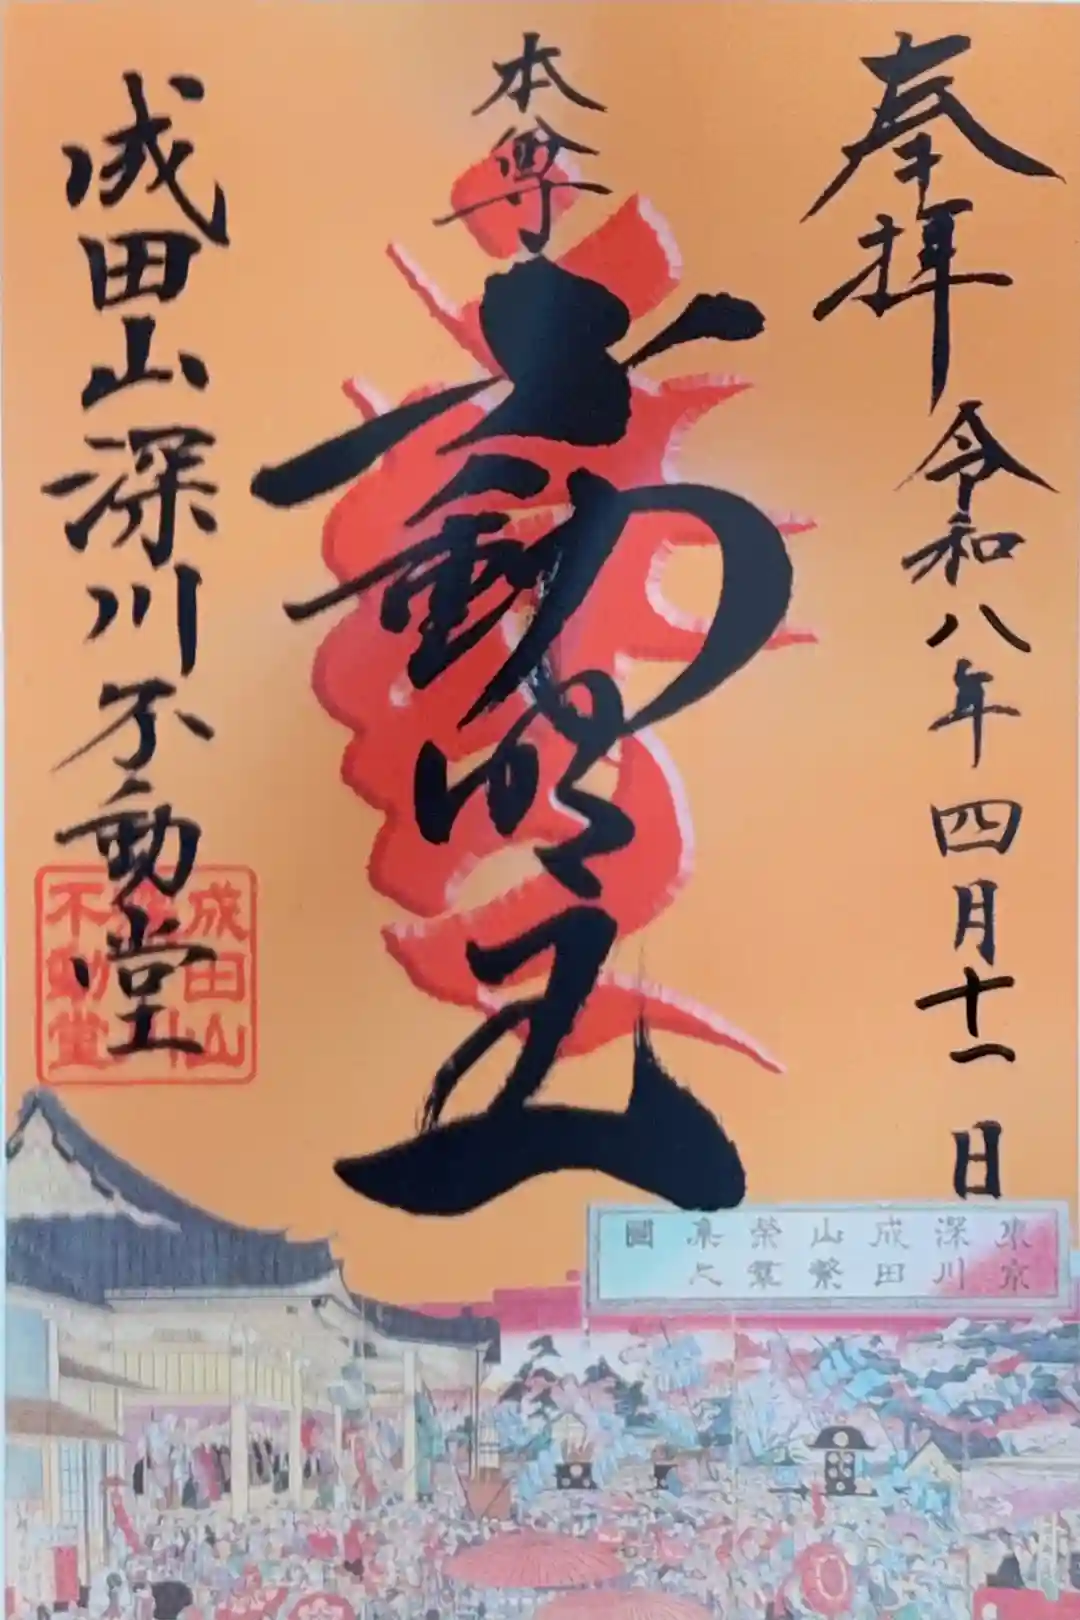 奉拝
令和八年四月十一日
本尊
不動明王
成田山深川不動堂
成田山
深川
不動堂
東京
深川
成田
山繁
榮業
集之
圖